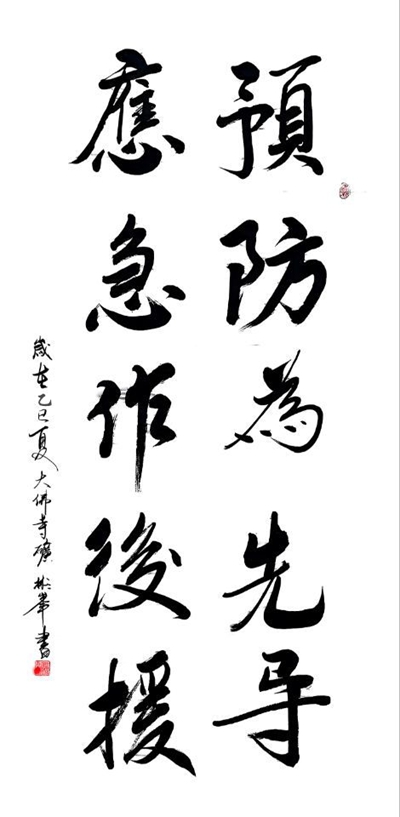 預防為先导
應急作後援
歲在乙巳夏大佛寺礦林峯書